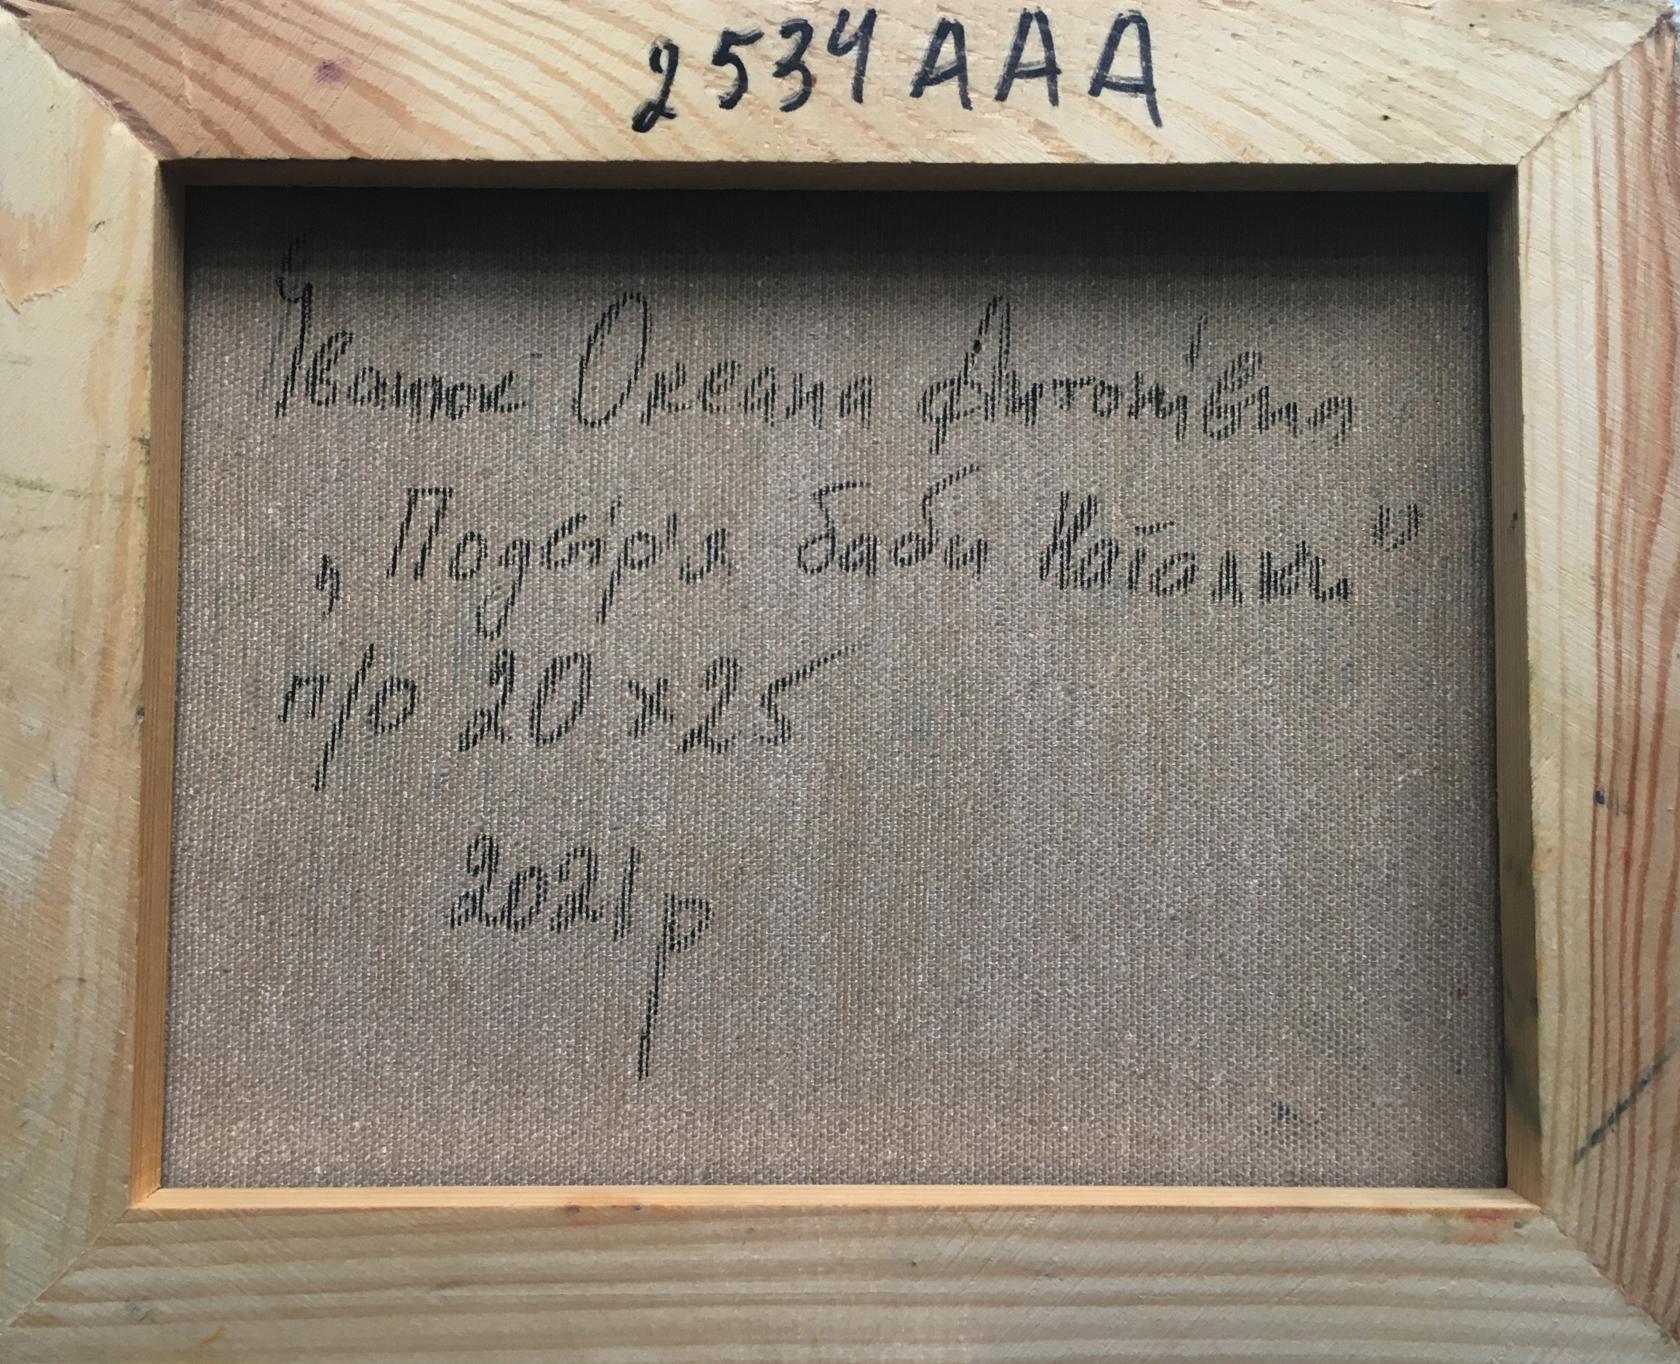 2534 AAA
Іванюк Оксана Антонівна
„Подвіря баби Наталки"
п/о 20 x 25
2021р